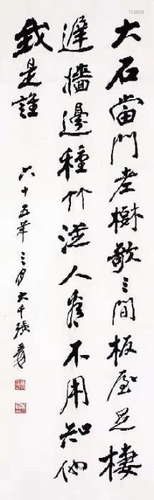 大石當門老樹欹三間板屋足棲
遲墻邊種竹從人看不用知他
我是誰
六十五年三月大千張爰